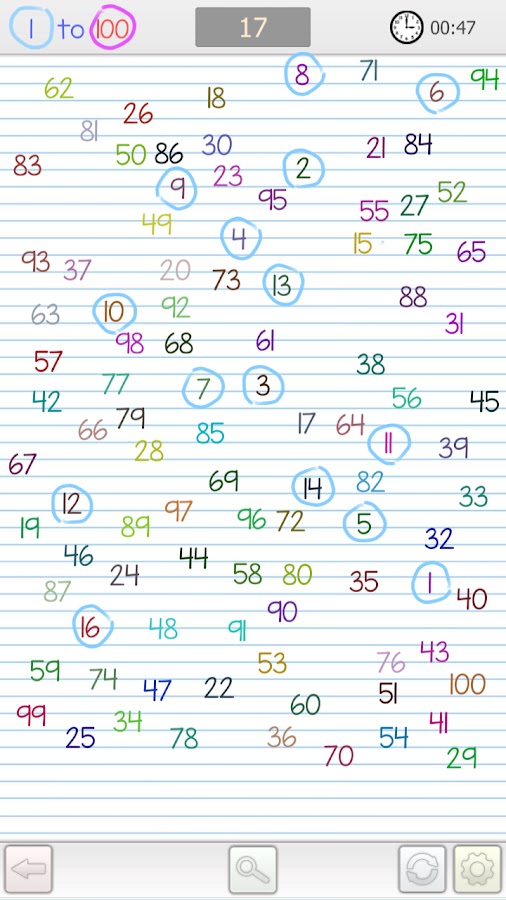 1 to 100 17 00:47
8 71 94
62 18 6
26
81
50 86 30 21 84
83 23 2
9 95 55 27 52
49
4 15 75 65
93 37 20 73 13
88
63 10 92 31
98 68 61
57 38
77 7 3
42 56 45
66 79 85 17 64
28 11 39
67
69 14 82 33
12 97
19 89 96 72 5
32
46 44
24 58 80 35 1
87 40
90
16 48 91
43
59 53 76
74 47 22 51 100
60
99 34 41
25 78 36 54
70 29